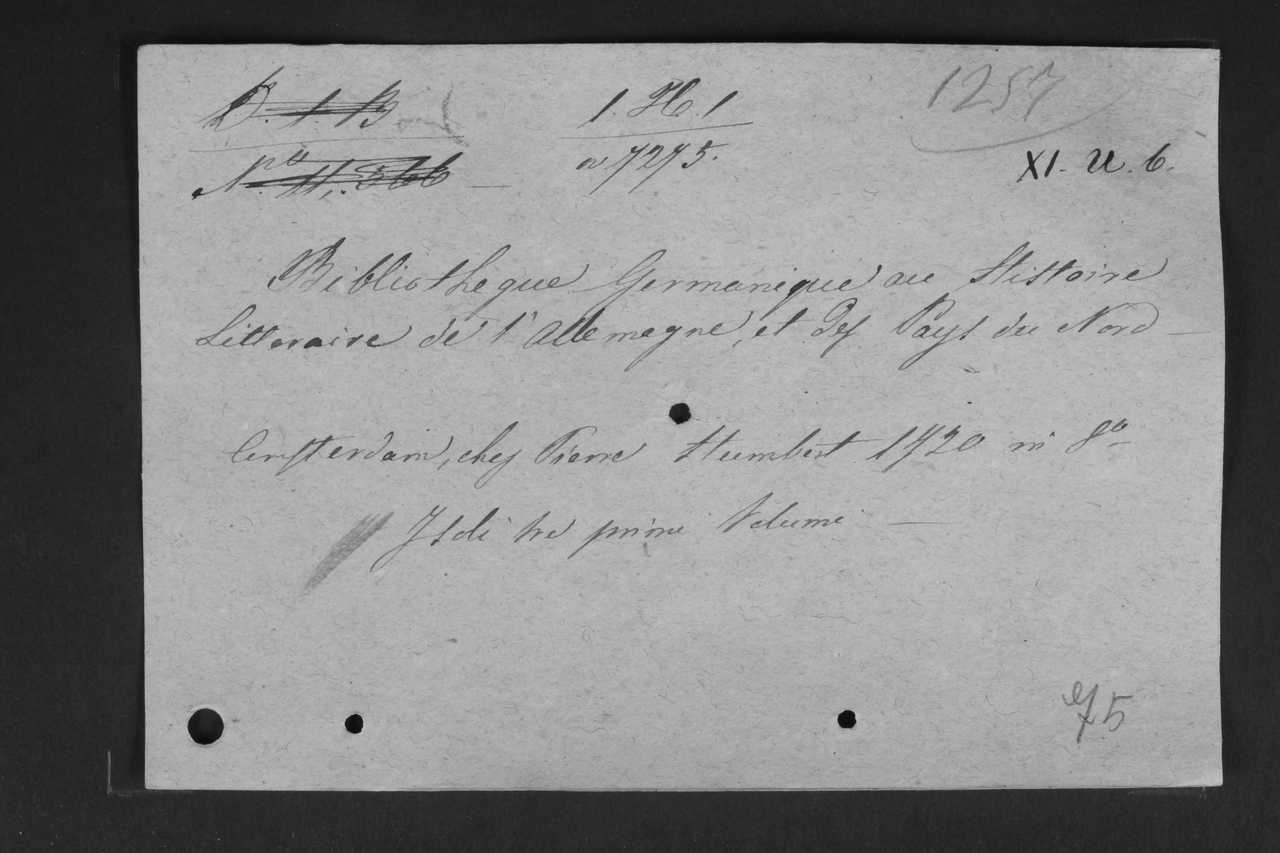 D. 1. B 1. H. 1 1257
Nº 11,366 a 7275. XI. U. 6.
Bibliothèque Germanique ou Histoire
Litteraire de l'Allemagne, et des Pays du Nord —
Amsterdam, chez Pierre Humbert 1720 in 8º
Isdi tre primi Volumi —
75